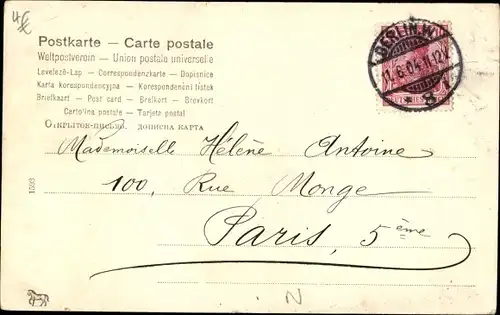 Postkarte — Carte postale
Weltpostverein — Union postale universelle
Levelező-Lap — Correspondenzkarte — Dopisnice
Karta korespondencyjna — Korespondenční lístek
Briefkaart — Post card — Brelkort — Brevkort
Cartolina postale — Tarjeta postal
Открытое-письмо. дописна карта
BERLIN.W.
11.6.04.11.12V.
* 8
Mademoiselle Hélène Antoine
100, Rue Monge
Paris, 5ème
N